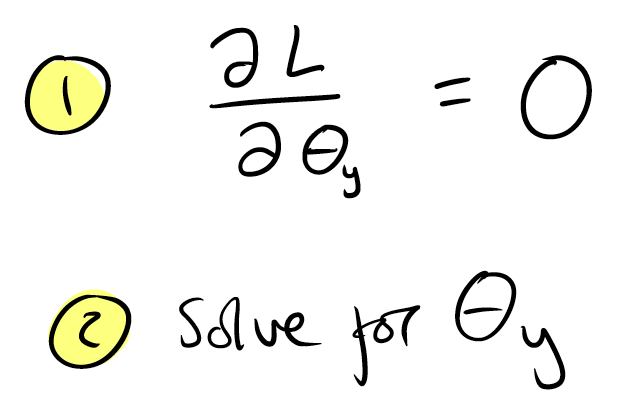 ① ∂L/∂θy = 0
② Solve for θy